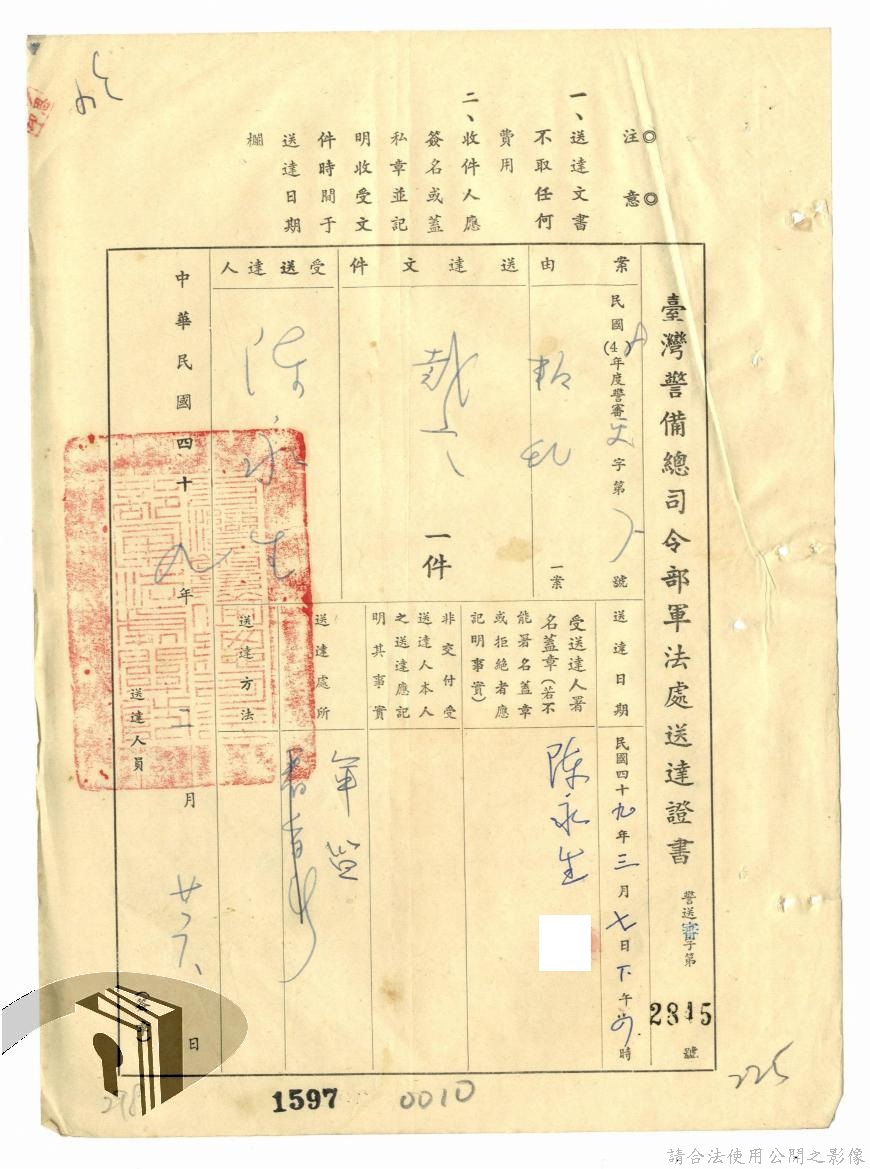 ◎注意◎
一、送達文書
不取任何
費用
二、收件人應
簽名或蓋
私章並記
明收受文
件時間于
送達日期
欄
臺灣警備總司令部軍法處送達證書
警送審字第
2815
號
案由
民國(4
年度警審
字第
號
叛亂
一案
送達文件
一件
受送達人
陳永生
送達日期
民國四十九年三月七日下午
時
受送達人署
名蓋章(若不
能署名蓋章
或拒絕者應
記明事實)
陳永生
非交付受
送達人本人
之送達應記
明其事實
送達處所
軍監
送達方法
中華民國四十九年二月廿六日
送達人員
1597
0010
225
298
請合法使用公開之影像